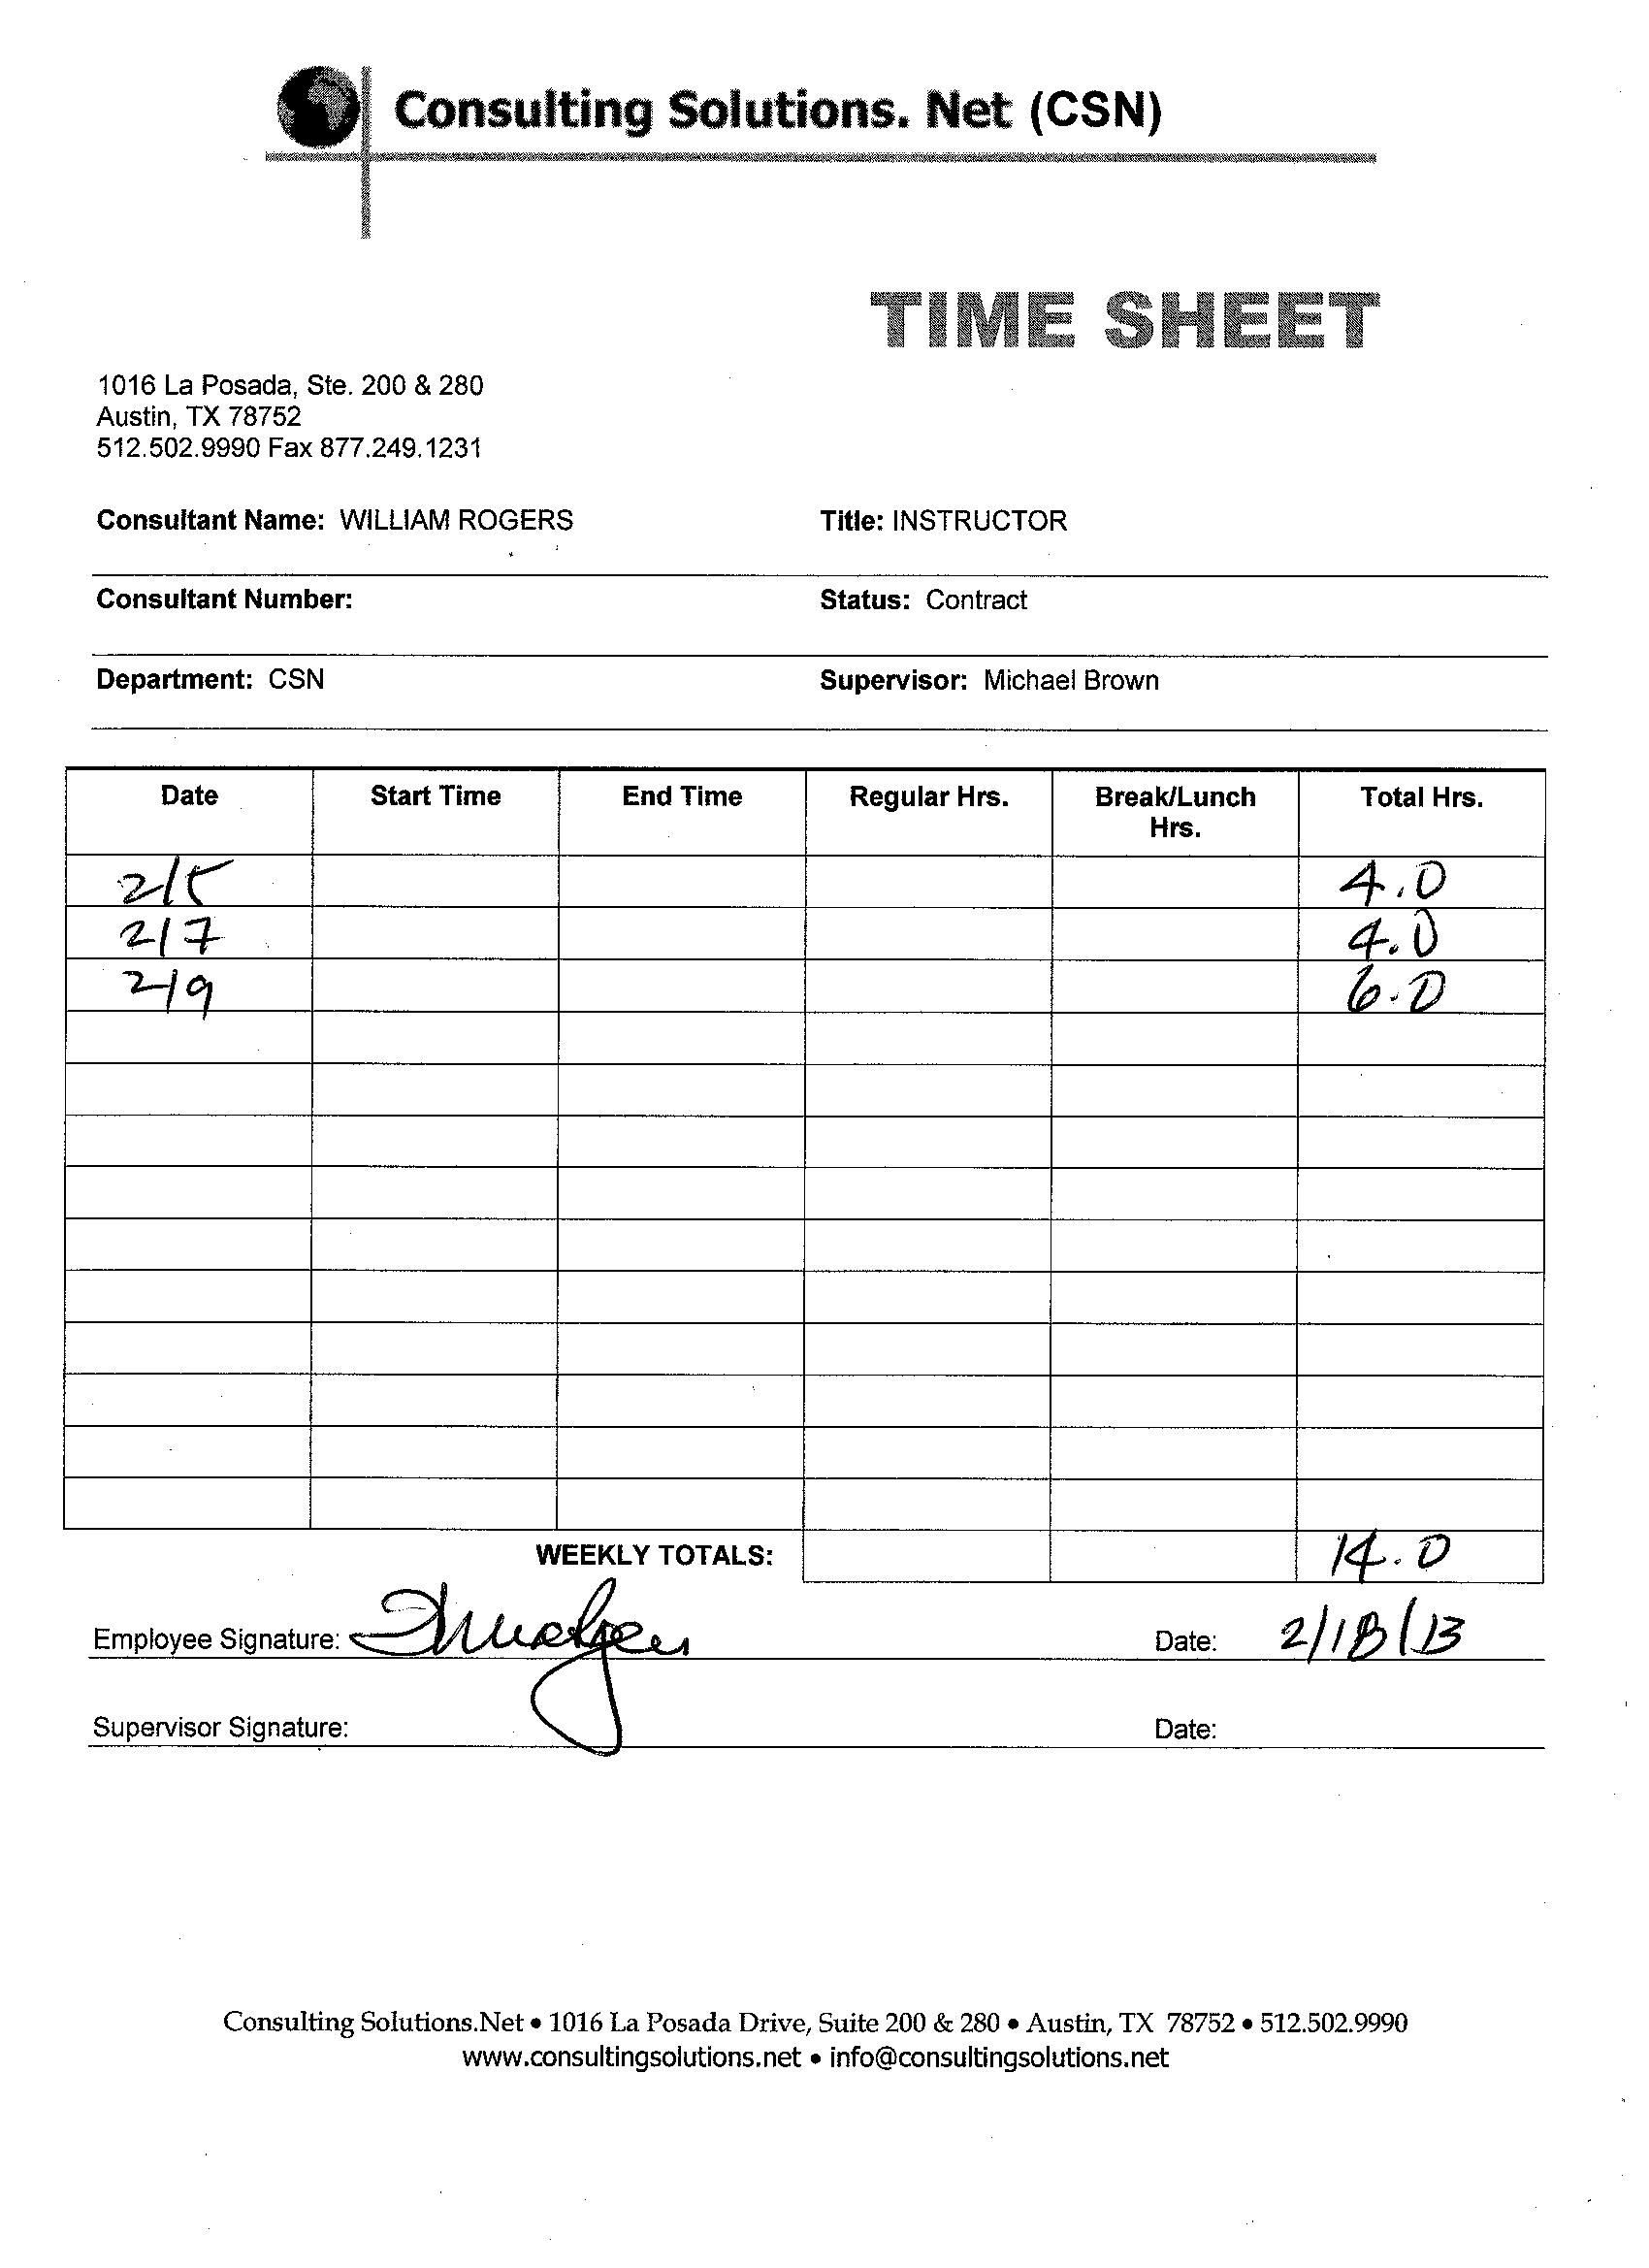 Consulting Solutions. Net (CSN)
TIME SHEET
1016 La Posada, Ste. 200 & 280
Austin, TX 78752
512.502.9990 Fax 877.249.1231
Consultant Name: WILLIAM ROGERS Title: INSTRUCTOR
Consultant Number: Status: Contract
Department: CSN Supervisor: Michael Brown
Date Start Time End Time Regular Hrs. Break/Lunch Hrs. Total Hrs.
2/5 4.0
2/7 4.0
2/9 6.0
WEEKLY TOTALS: 14.0
Employee Signature: Date: 2/18/13
Supervisor Signature: Date:
Consulting Solutions.Net • 1016 La Posada Drive, Suite 200 & 280 • Austin, TX 78752 • 512.502.9990
www.consultingsolutions.net • info@consultingsolutions.net